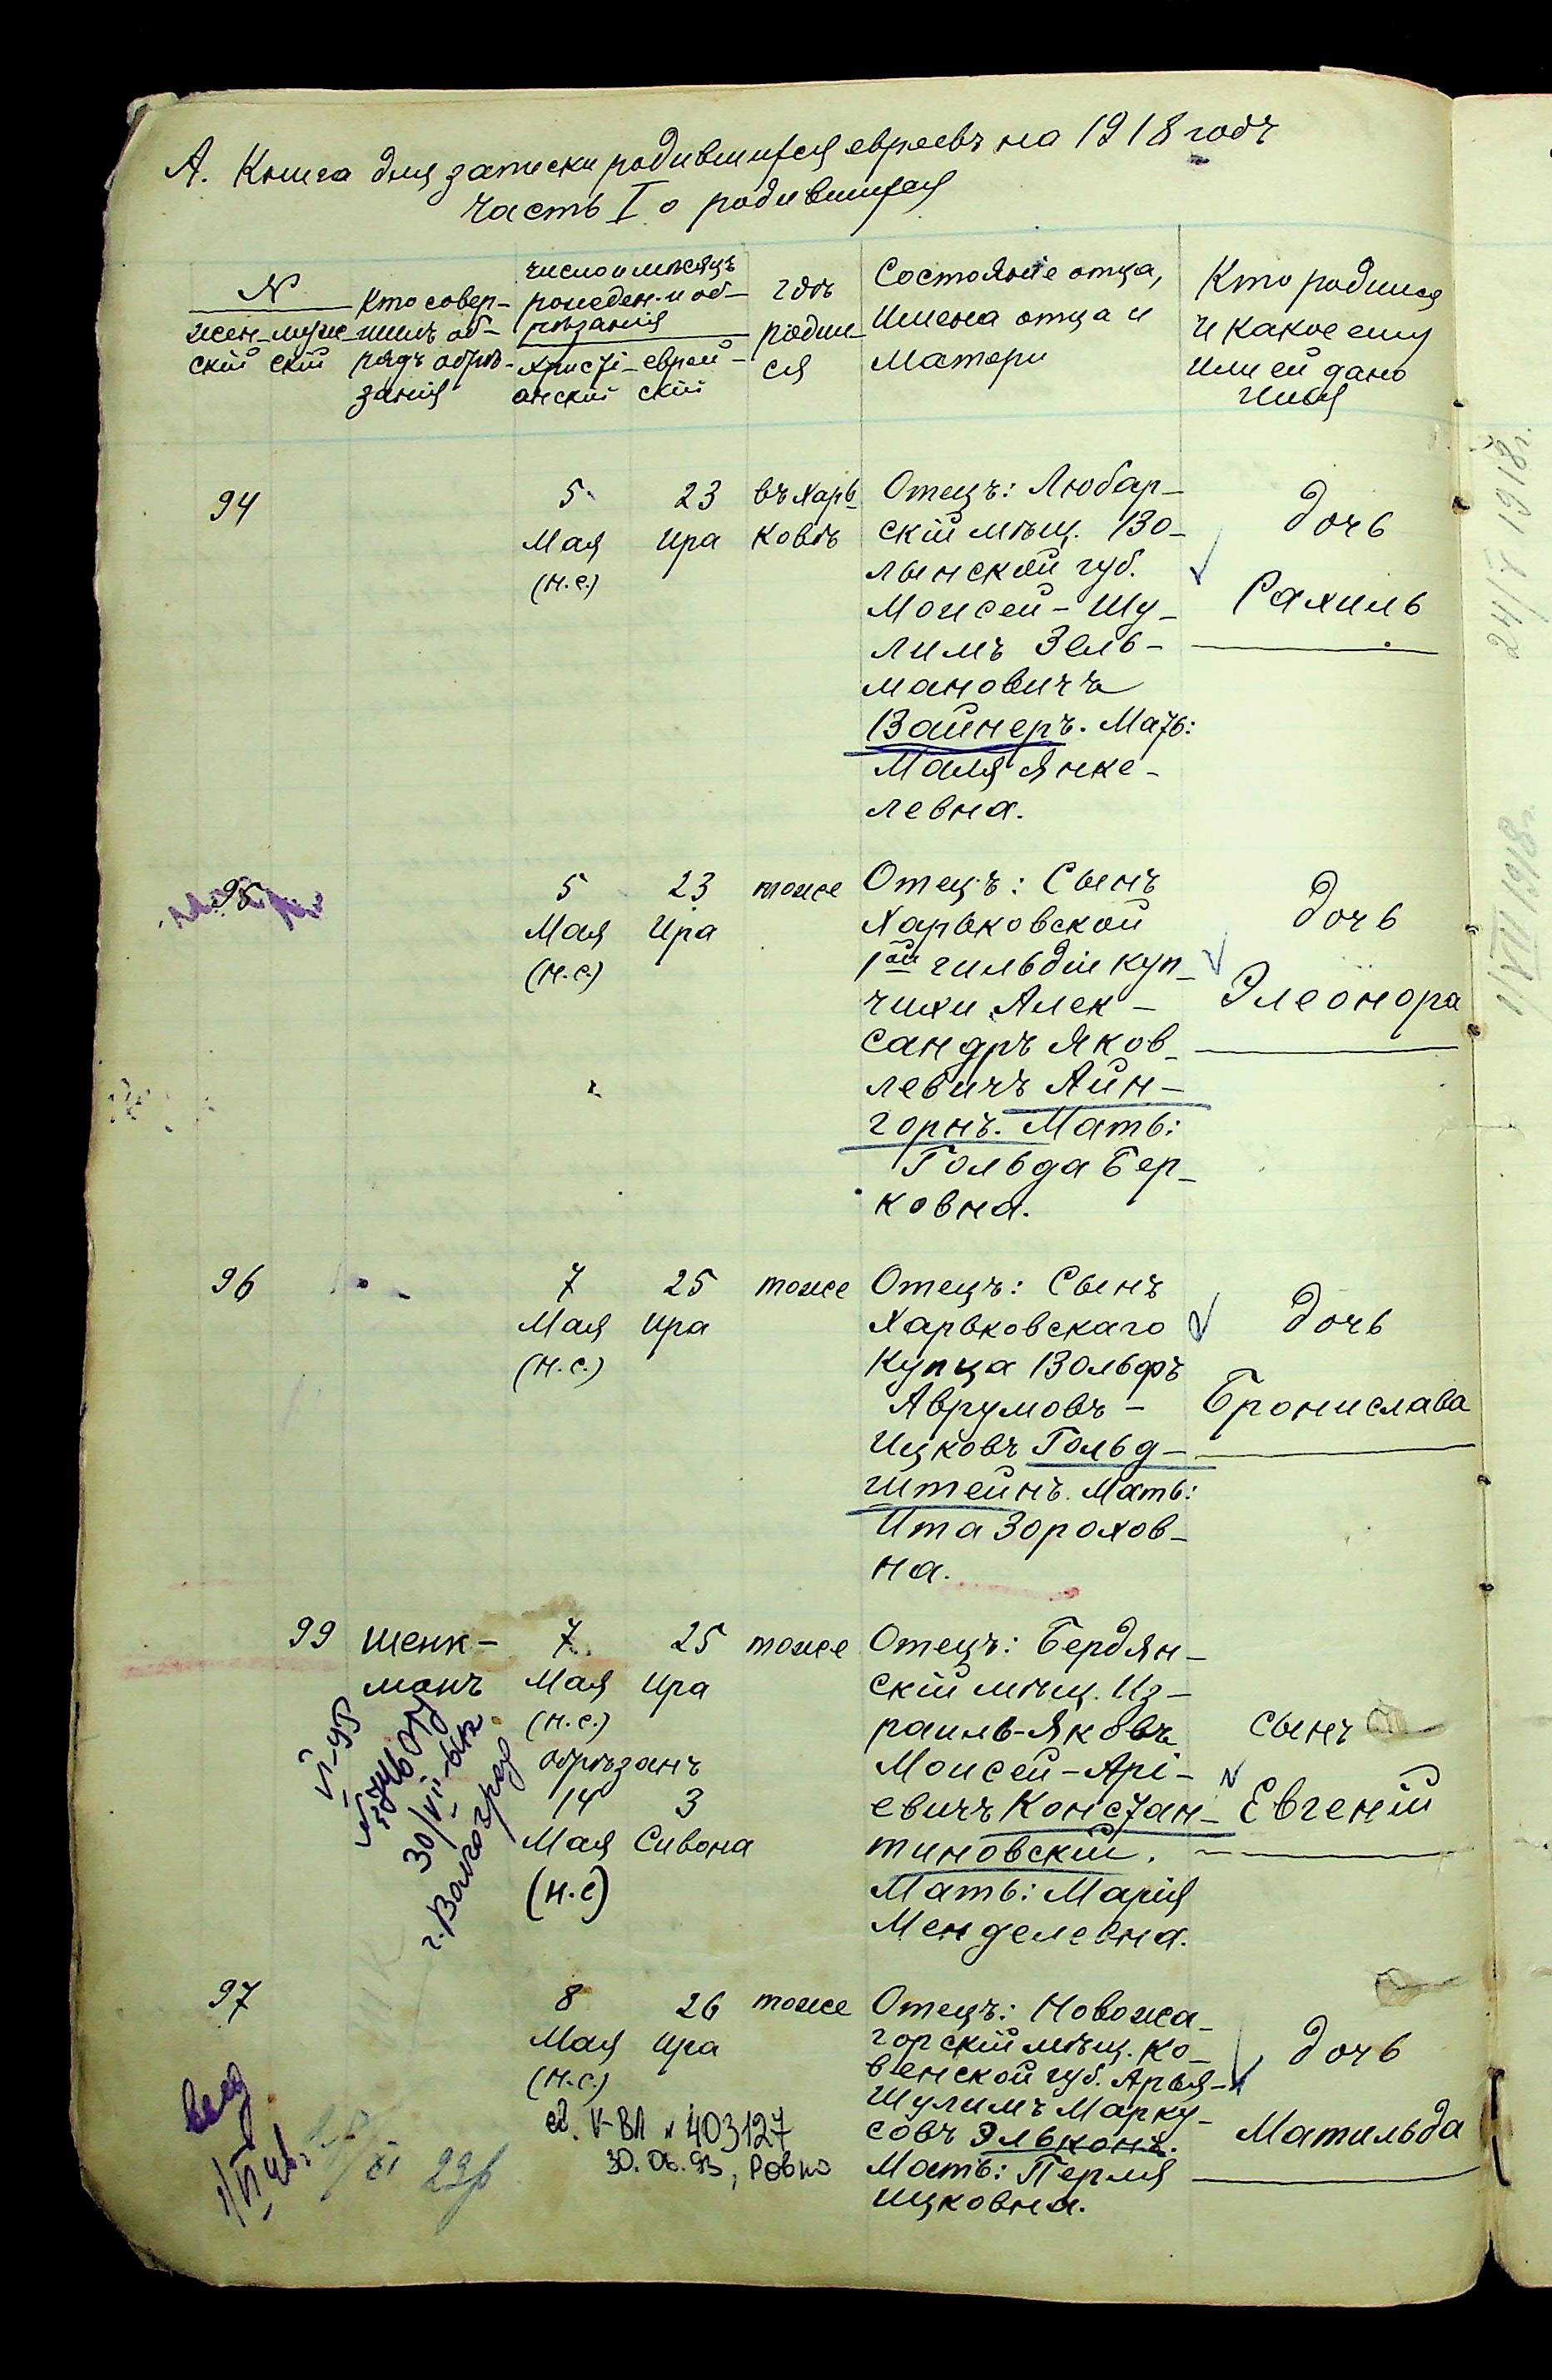 А. Книга для записки родившихся евреевъ на 1918 годъ
Часть I о родившихся
№
жен-
скій
муж-
скій
Кто совер-
шилъ об-
рядъ обрѣ-
занія
число и мѣсяцъ
рожден. и об-
рѣзанія
христі-
анскій
еврей-
скій
гдѣ
родил-
ся
Состояніе отца,
имена отца и
матери
Кто родился
и какое ему
или ей дано
имя
94
5
Мая
(н.с.)
23
Ира
въ Харь-
ковѣ
Отецъ: Любар-
скій мѣщ. Во-
лынской губ.
Моисей-Шу-
лимъ Зель-
мановичъ
Вайнеръ. Мать:
Маля Янке-
левна.
дочь
Рахиль
95
5
Мая
(н.с.)
23
Ира
тоже
Отецъ: Сынъ
Харьковской
1ой гильдіи куп-
чихи Алек-
сандръ Яков-
левичъ Айн-
горнъ. Мать:
Гольда Бер-
ковна.
дочь
Элеонора
96
7
Мая
(н.с.)
25
Ира
тоже
Отецъ: Сынъ
Харьковскаго
Купца Вольфъ
Аврумовъ-
Ицковъ Гольд-
штейнъ. Мать:
Ита Зорохов-
на.
дочь
Бронислава
99
Шенк-
манъ
7
Мая
(н.с.)
обрѣзанъ
14
Мая
(н.с)
25
Ира
3
Сивона
тоже
Отецъ: Бердян-
скій мѣщ. Из-
раиль-Яковъ
Моисей-Арі-
евичъ Констан-
тиновскій.
Мать: Марія
Менделевна.
сынъ
Евгеній
VI-УР
30/VII-
г. Волгоград
97
8
Мая
(н.с.)
26
Ира
тоже
Отецъ: Новожа-
горскій мѣщ. Ко-
венской губ. Арья-
Шулимъ Марку-
совъ Эльконъ.
Мать: Перля
Ицковна.
дочь
Матильда
V-ВЛ № 403127
30.06.93, Ровно
24/V 1918г.
1/VII 1918г.